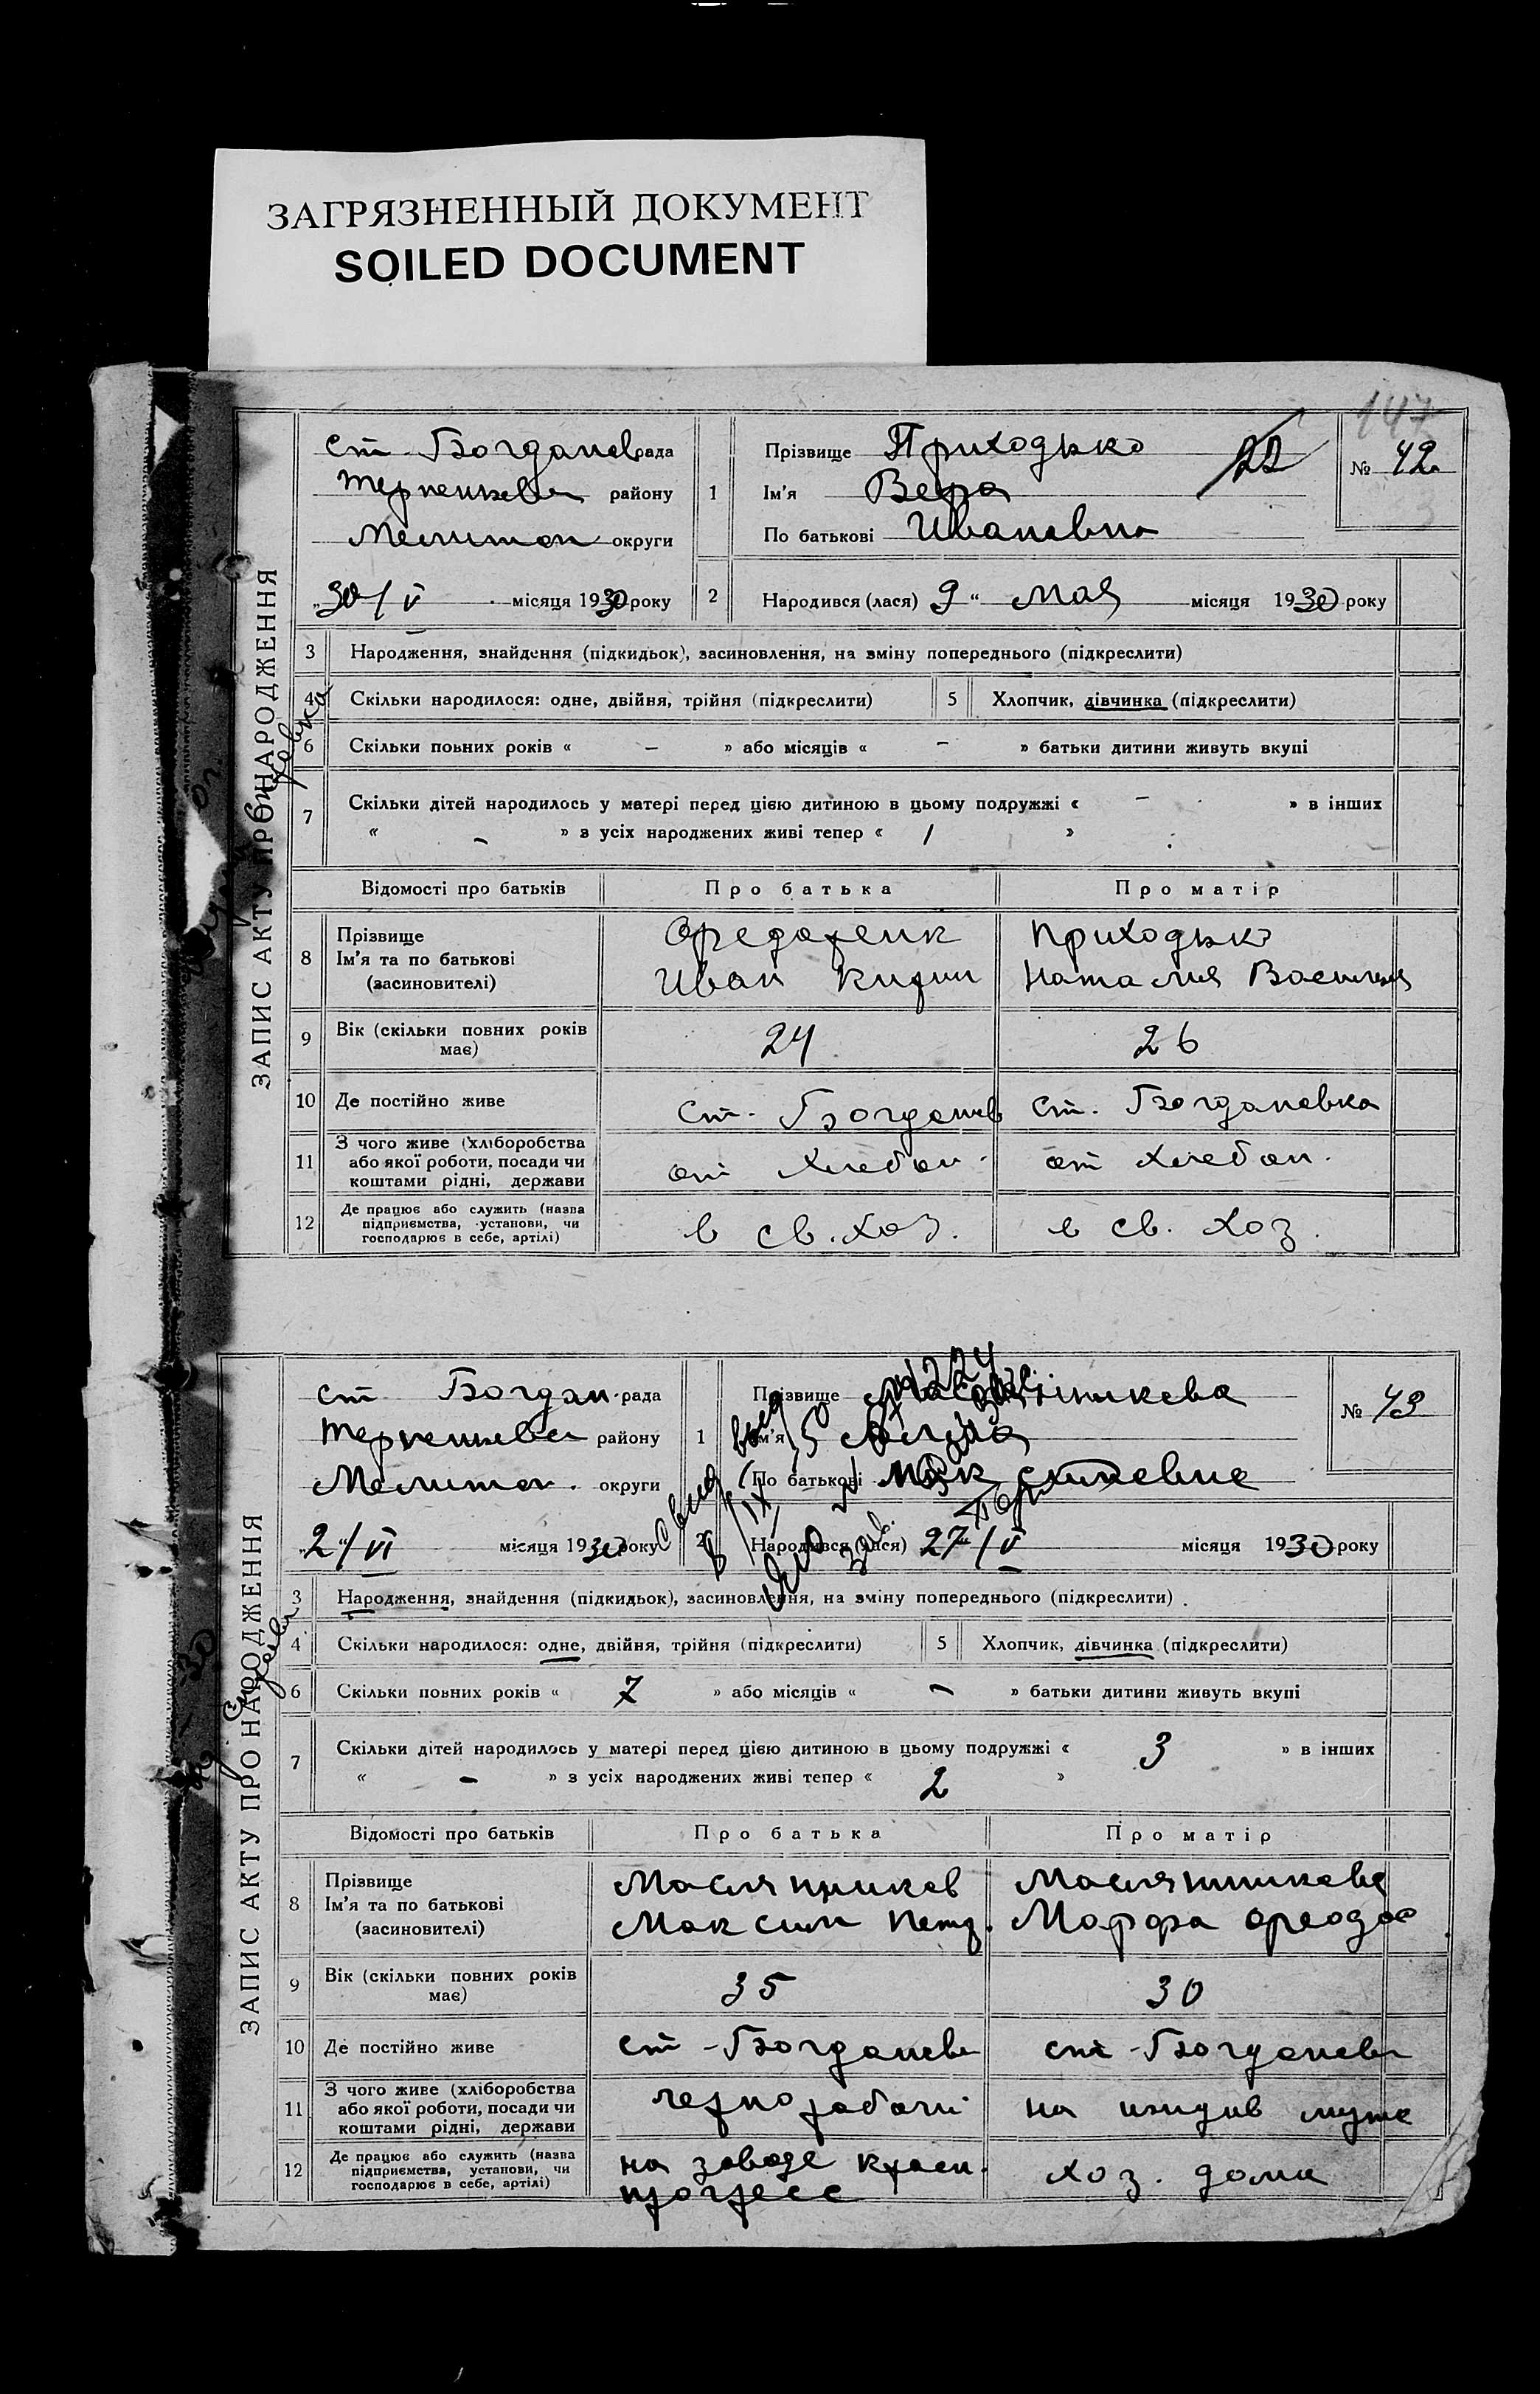 ЗАГРЯЗНЕННЫЙ ДОКУМЕНТ
SOILED DOCUMENT
147
ЗАПИС АКТУ ПРО НАРОДЖЕННЯ
ст Богданов рада
района району
Мелитоп округи
„30/V місяця 1930 року
1 Прізвище Приходько
Ім'я Вера
По батькові Ивановна
22
№ 42
2 Народився (лася) 9 “ мая місяця 1930 року
3 Народження, знайдення (підкидьок), засиновлення, на зміну попереднього (підкреслити)
4 Скільки народилося: одне, двійня, трійня (підкреслити) 5 Хлопчик, дівчинка (підкреслити)
6 Скільки повних років « – » або місяців « – » батьки дитини живуть вкупі
7 Скільки дітей народилось у матері перед цією дитиною в цьому подружжі « – » в інших
« – » з усіх народжених живі тепер « 1 »
Відомості про батьків Про батька Про матір
8 Прізвище Приходько
Ім'я та по батькові Иван Кирил Наталия Василев
(засновителі)
9 Вік (скільки повних років має) 24 26
10 Де постійно живе ст. Богданов ст. Богдановка
11 З чого живе (хліборобства або якої роботи, посади чи коштами рідні, держави от хлебоп. от хлебоп.
12 Де працює або служить (назва підприємства, установи, чи господарює в себе, артілі) в св. хоз. в св. хоз.
ЗАПИС АКТУ ПРО НАРОДЖЕННЯ
ст Богдан. рада
району
Мелитоп. округи
„2“/VI місяця 1930 року
1 Прізвище Масляникова
Ім'я
По батькові Максимовна
№ 43
2 Народився (лася) 27/V місяця 1930 року
3 Народження, знайдення (підкидьок), засиновлення, на зміну попереднього (підкреслити)
4 Скільки народилося: одне, двійня, трійня (підкреслити) 5 Хлопчик, дівчинка (підкреслити)
6 Скільки повних років « 7 » або місяців « – » батьки дитини живуть вкупі
7 Скільки дітей народилось у матері перед цією дитиною в цьому подружжі « 3 » в інших
« – » з усіх народжених живі тепер « 2 »
Відомості про батьків Про батька Про матір
8 Прізвище Маслянников Маслянникова
Ім'я та по батькові Максим Петр. Марфа
(засиновителі)
9 Вік (скільки повних років має) 35 30
10 Де постійно живе ст-Богданов ст-Богданов
11 З чого живе (хліборобства або якої роботи, посади чи коштами рідні, держави чернорабочи на иждив мужа
12 Де працює або служить (назва підприємства, установи, чи господарює в себе, артілі) на заводе красн. хоз. дома
прогресс